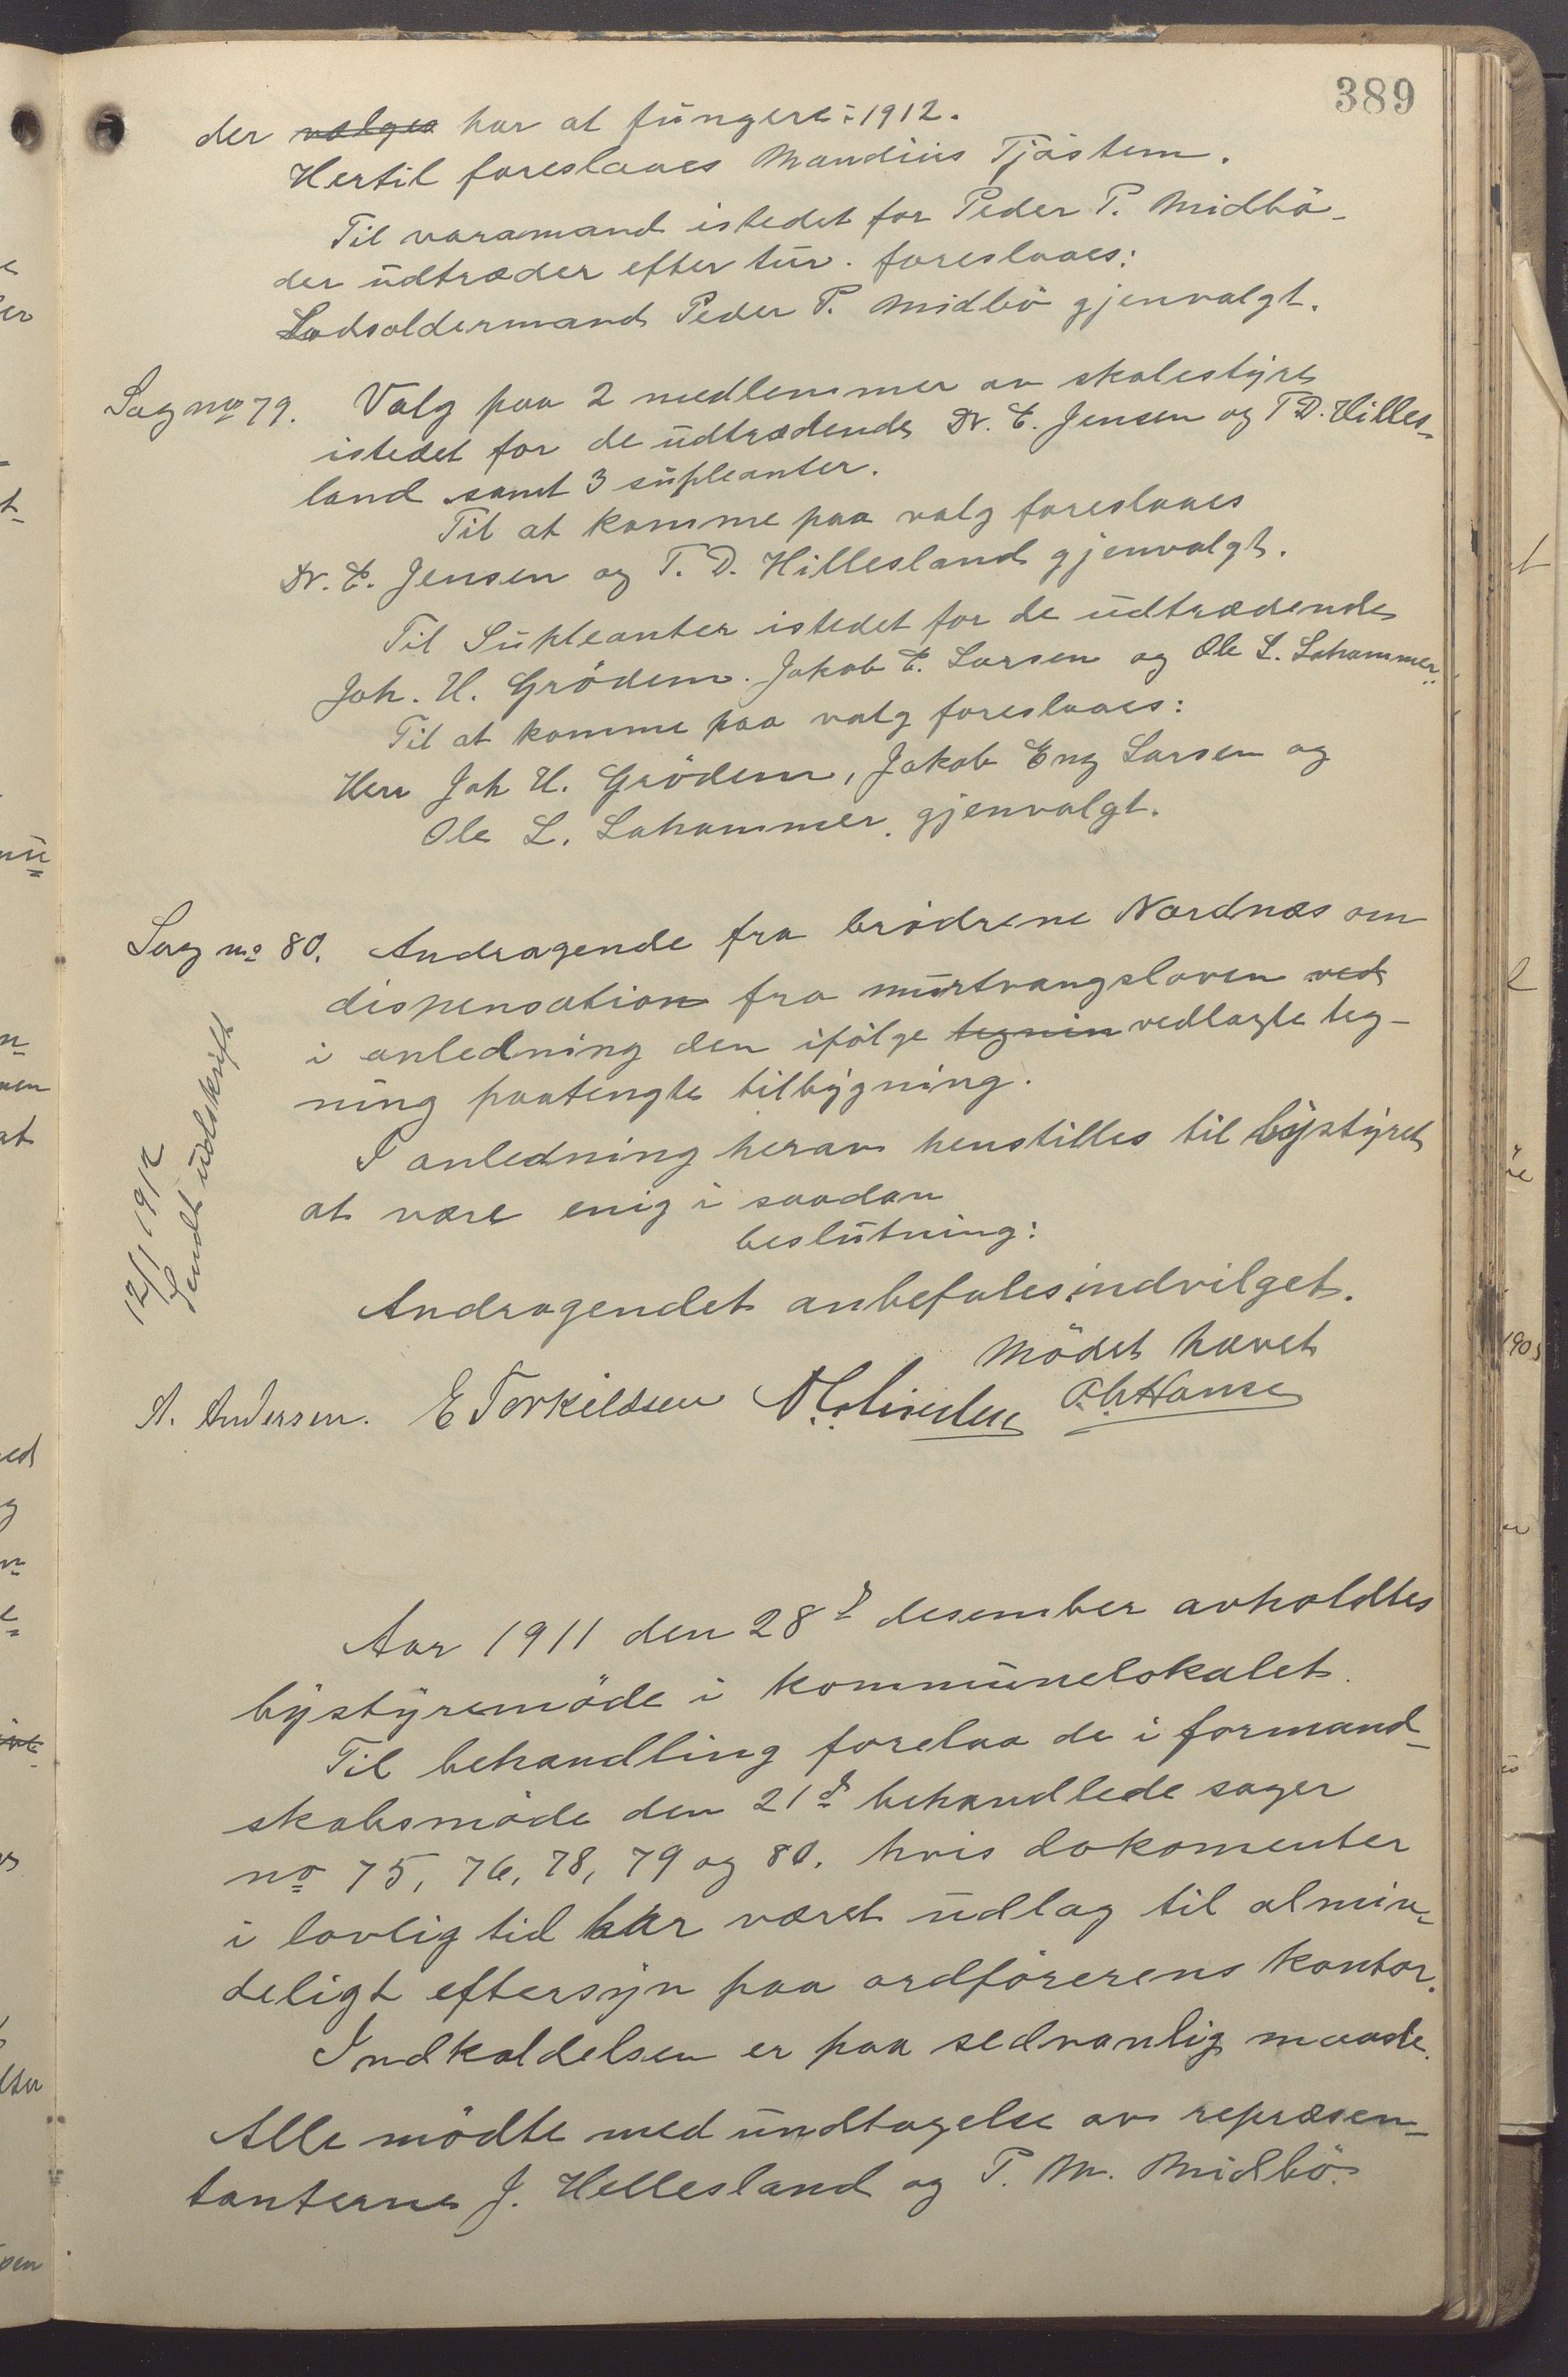 389
der ~~vælges~~ har at fungere i 1912.
Hertil foreslaaes Mandius Tjøstem.
Til varamand istedet for Peder P. Midbö
der udtræder efter tur. foreslaaes:
Lodsoldermand Peder P. Midbö gjenvalgt.
Sag no 79. Valg paa 2 medlemmer av skolestyre
istedet for de udtrædende Dr. E. Jensen og T. D. Hilles-
land samt 3 supleanter.
Til at komme paa valg foreslaaes
Dr. E. Jensen og T. D. Hillesland gjenvalgt.
Til Supleanter istedet for de udtrædende
Joh. H. Grödem. Jakob E. Larsen og Ole L. Lohammer.
Til at komme paa valg foreslaaes:
Herr Joh H. Grödem, Jakob Eng Larsen og
Ole L. Lohammer, gjenvalgt.
Sag no 80. Andragende fra brödrene Nordnæs om
dispensation fra murtvangsloven ~~ved~~
i anledning den ifölge ~~tegnin~~ vedlagte teg-
ning paatengte tilbygning.
I anledning herav henstilles til bystyret
at være enig i saadan
beslutning:
Andragendet anbefales indvilget.
12/1 1912
Sendt udskrift
Mödet hævet
A. Andersen. E Torkildsen
Aar 1911 den 28de desember avholdtes
bystyremöde i kommunelokalet.
Til behandling forelaa de i formand-
skabsmöde den 21de behandlede sager
no 75, 76, 78, 79 og 80. hvis dokomenter
i lovlig tid har været udlag til almin-
deligt eftersyn paa ordförerens kontor.
Indkaldelsen er paa sedvanlig maade.
Alle mödte med undtagelse av repræsen-
tanterne J. Hellesland og P. M. Midbö.